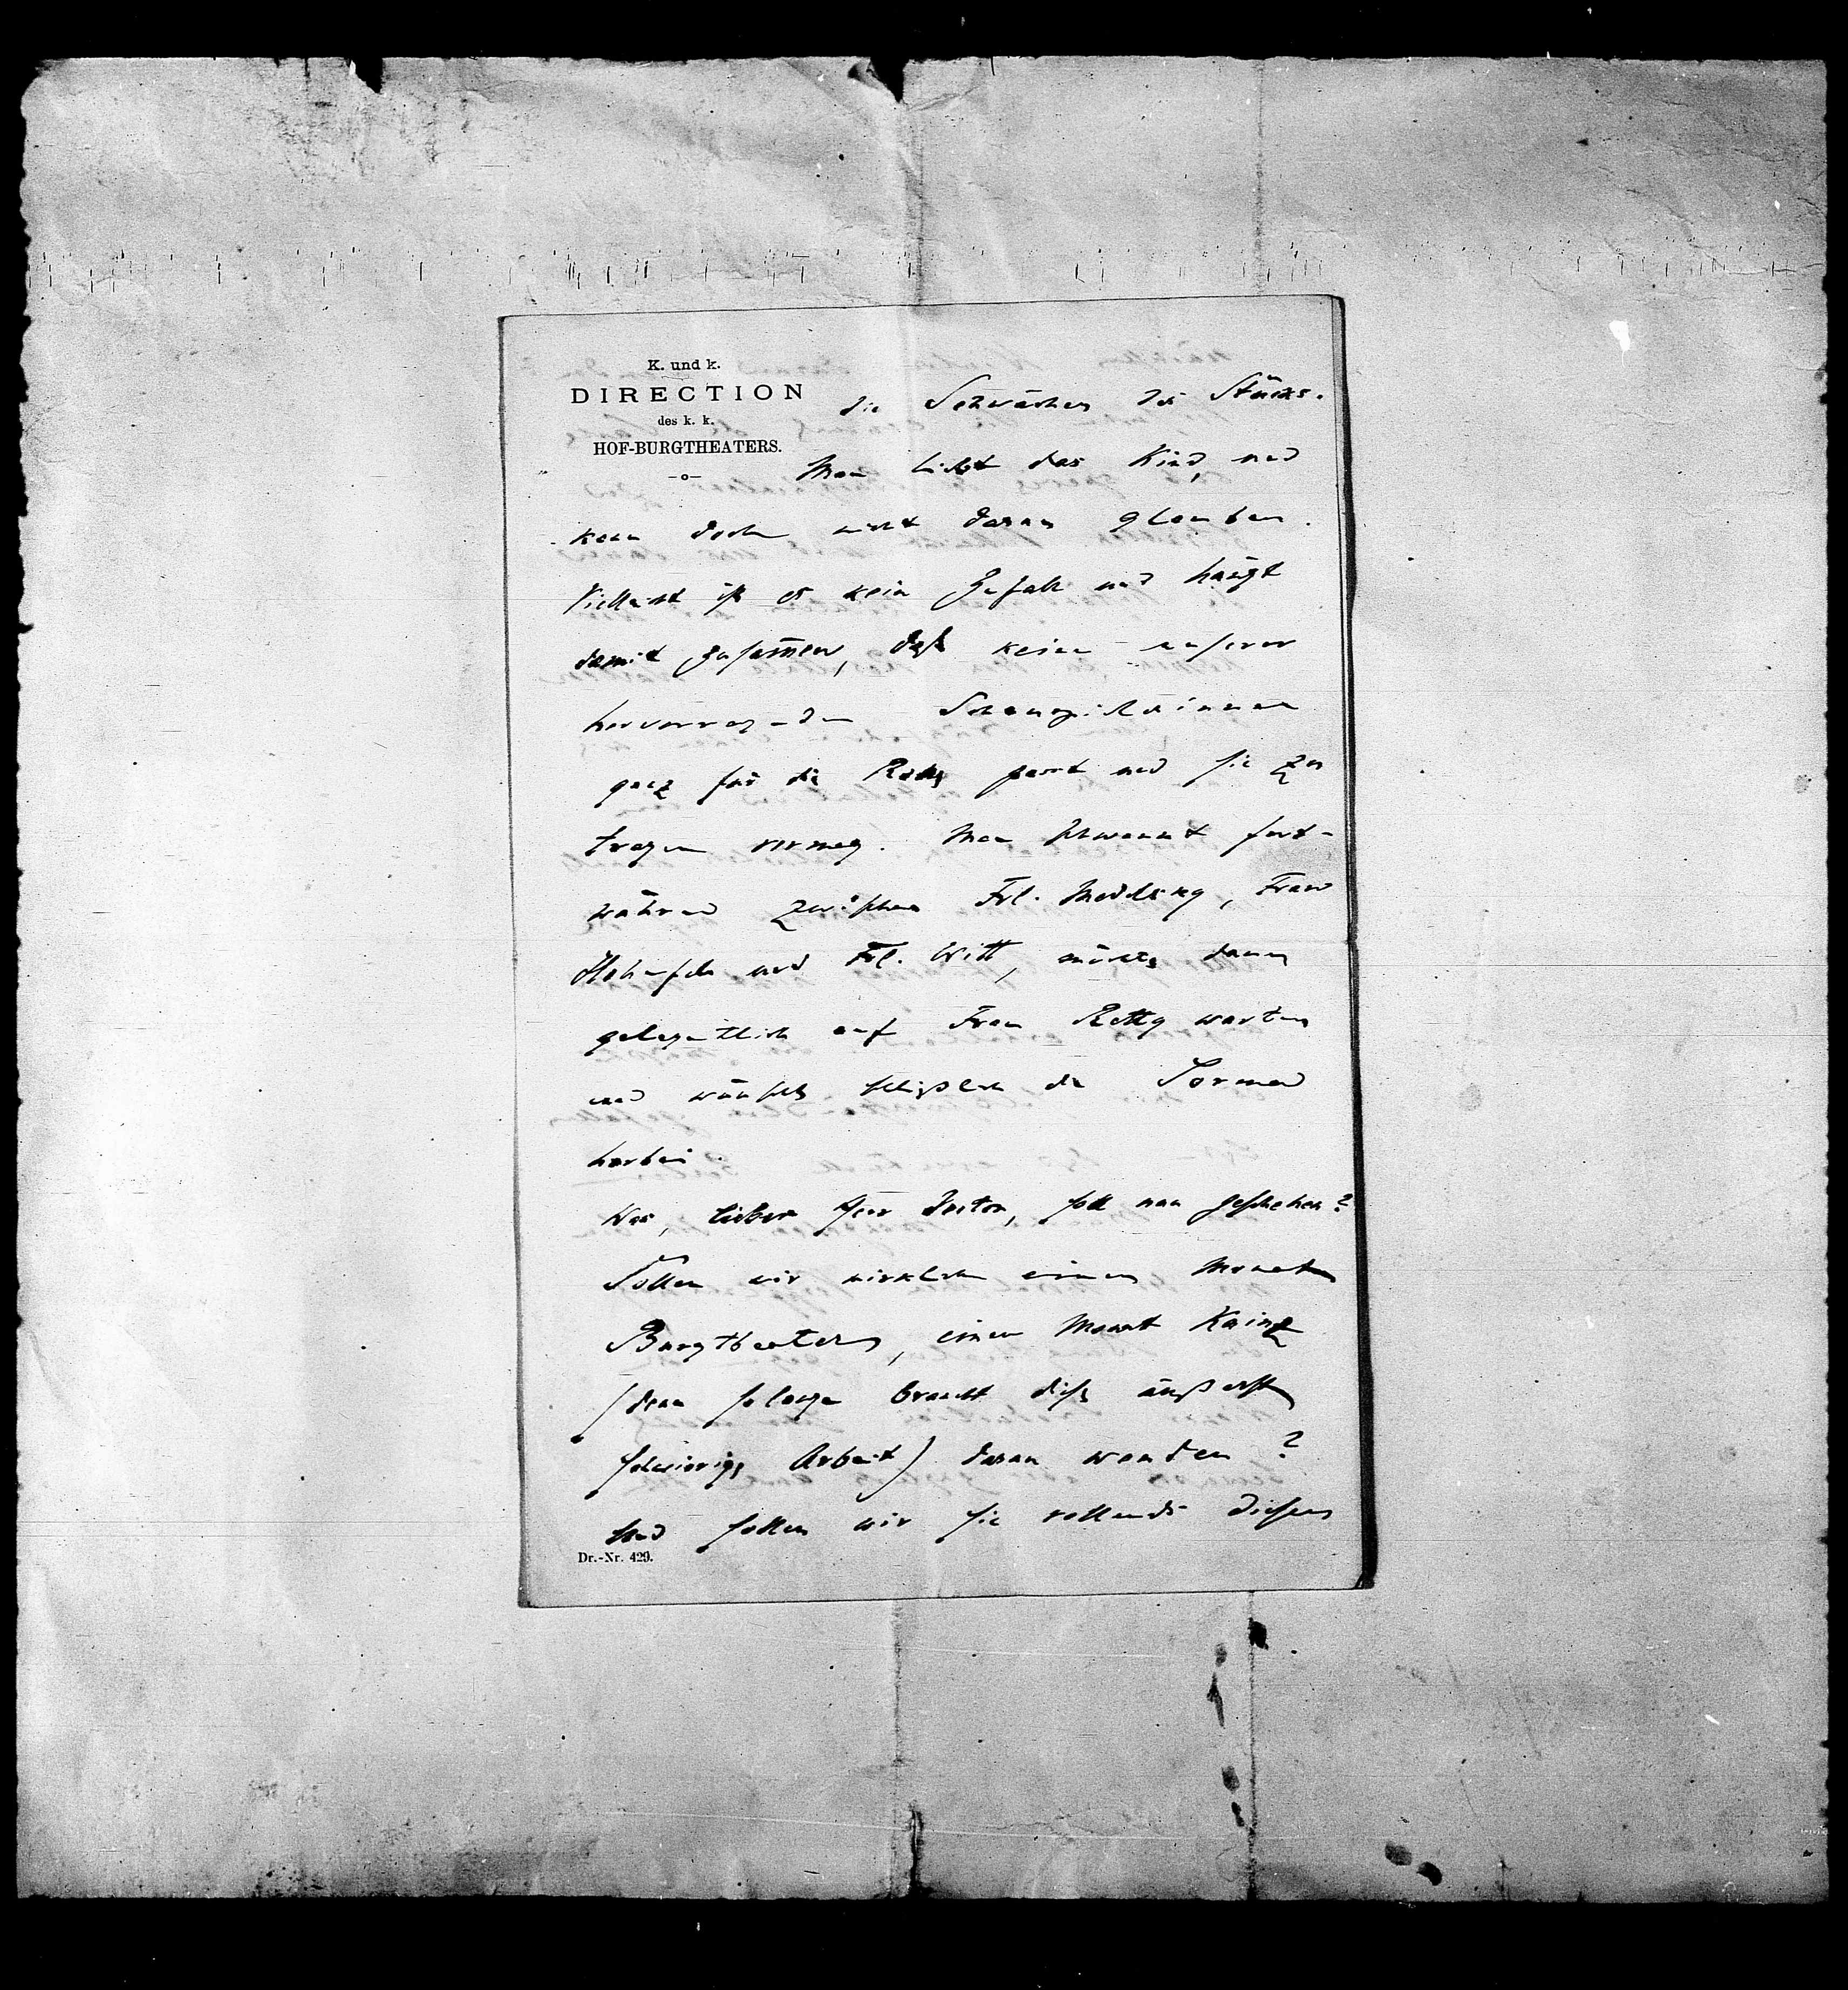 K. und k.
DIRECTION
des k. k.
HOF-BURGTHEATERS.
—o—
die Schwächen des Stücks.
Man liebt das Kind, und
kann doch nicht daran glauben.
Vielleicht ist es kein Zufall und hängt
damit zusam̅en, daß keine unserer
hervorragenden Schauspielerinnen
ganz für die Rolle passt und sie zu
tragen vermag. Man schwankt fort-
während zwischen Frl. Medelsky, Frau
Hohenfels und Frl. Witt, möchte dann
gelegentlich auf Frau Retty warten
und wünscht schließlich die Sorma
herbei.
Was, lieber Herr Doctor, soll nun geschehen?
Sollen wir wirklich einen Monat
Burgtheater, einen Monat Kainz
(denn solange braucht diese äußerst
schwierige Arbeit) daran wenden?
Und sollen wir sie vollends diesen
Dr.-Nr. 429.